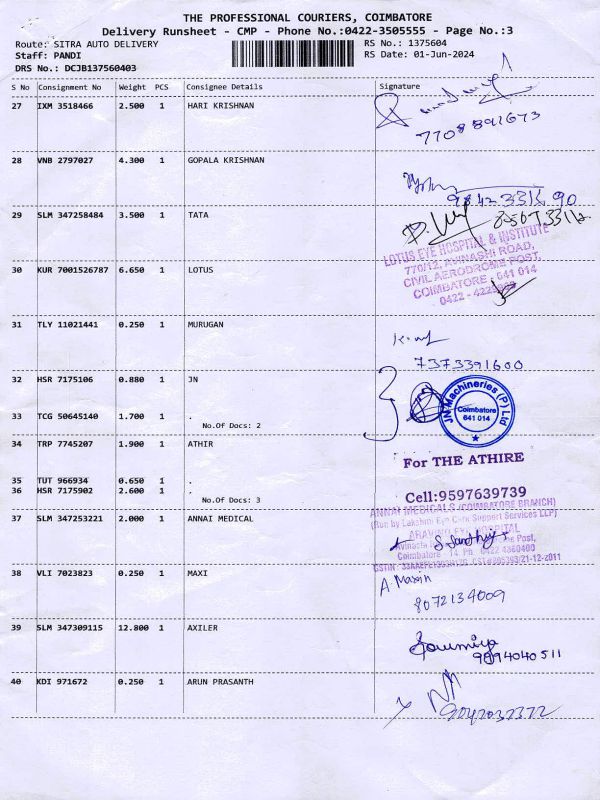 THE PROFESSIONAL COURIERS, COIMBATORE
Delivery Runsheet - CMP - Phone No.:0422-3505555 - Page No.:3
Route: SITRA AUTO DELIVERY RS No.: 1375604
Staff: PANDI RS Date: 01-Jun-2024
DRS No.: DCJB137560403
S No Consignment No Weight PCS Consignee Details Signature
27 IXM 3518466 2.500 1 HARI KRISHNAN
7708891673
28 VNB 2797027 4.300 1 GOPALA KRISHNAN
29 SLM 347258484 3.500 1 TATA
LOTUS EYE HOSPITAL & INSTITUTE
770/12, AVINASHI ROAD,
CIVIL AERODROME POST,
COIMBATORE - 641 014
0422 -
30 KUR 7001526787 6.650 1 LOTUS
31 TLY 11021441 0.250 1 MURUGAN
7373391600
32 HSR 7175106 0.880 1 JN
JN Machineries (P) Ltd
Coimbatore
641 014
33 TCG 50645140 1.700 1 .
No.Of Docs: 2
34 TRP 7745207 1.900 1 ATHIR
For THE ATHIRE
35 TUT 966934 0.650 1 .
36 HSR 7175902 2.600 1 .
No.Of Docs: 3
Cell:9597639739
37 SLM 347253221 2.000 1 ANNAI MEDICAL
ANNAI MEDICALS (COIMBATORE BRANCH)
(Run by Lakshmi Eye Care Support Services LLP)
ARAVIND EYE HOSPITAL
38 VLI 7023823 0.250 1 MAXI
8072134009
39 SLM 347309115 12.800 1 AXILER
Sowmiya
9894040511
40 KDI 971672 0.250 1 ARUN PRASANTH